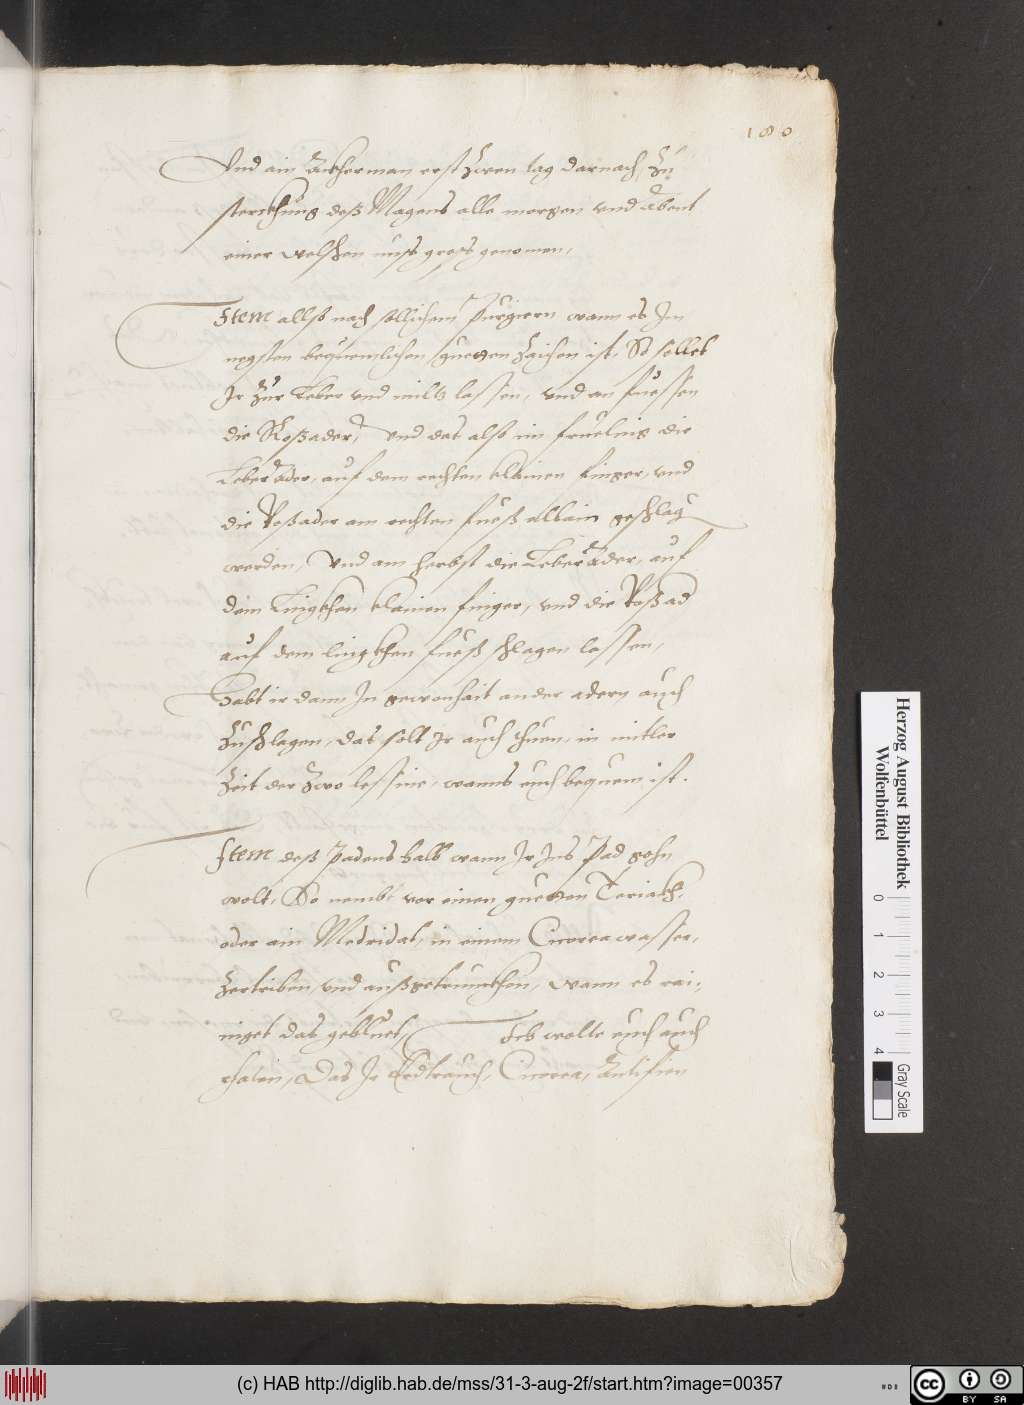 180
Und ain Ackherman erst zwen tag darnach, zu
sterckhung deß Magens alle morgen und Abent
einer welschen nuss gross genomen,
Item allso nach sollichem Purgiern wann es Im
negsten bequemlichen guetten Zaichen ist, So sollet
Ir Zur Leber und miltz lassen, und an fuessen
die Roßader, Und das also im fruelnig die
Leber Ader, auf dem rechten klainen finger, und
die Roßader am rechten fueß allain geschlag
werden, Und am herbst die Leber Ader, auf
dem Lingkhen klainen finger, und die Roßad
auf dem lingkhen fueß schlagen lassen,
Habt ir dann In gewonhait ander adern auch
Zuschlagen, das solt Ir auch thuen, in mitler
Zeit der Zwo lessine, wanns euch bequem ist.
Item deß Padens halb wann Ir Ins Pad gehn
wolt, So nembt vor einen guetten Teriackh,
oder ain Medridat, in einem Cicorea wasser,
Zertriben, und außgetrunckhen, Wann es rai,
niget das gebluet, Ich wolte euch auch
rhaten, Das Ir Erdtrauch, Cicorea, Antifien
Herzog August Bibliothek
Wolfenbüttel
0 1 2 3 4
Gray Scale
(c) HAB http://diglib.hab.de/mss/31-3-aug-2f/start.htm?image=00357
cc BY SA